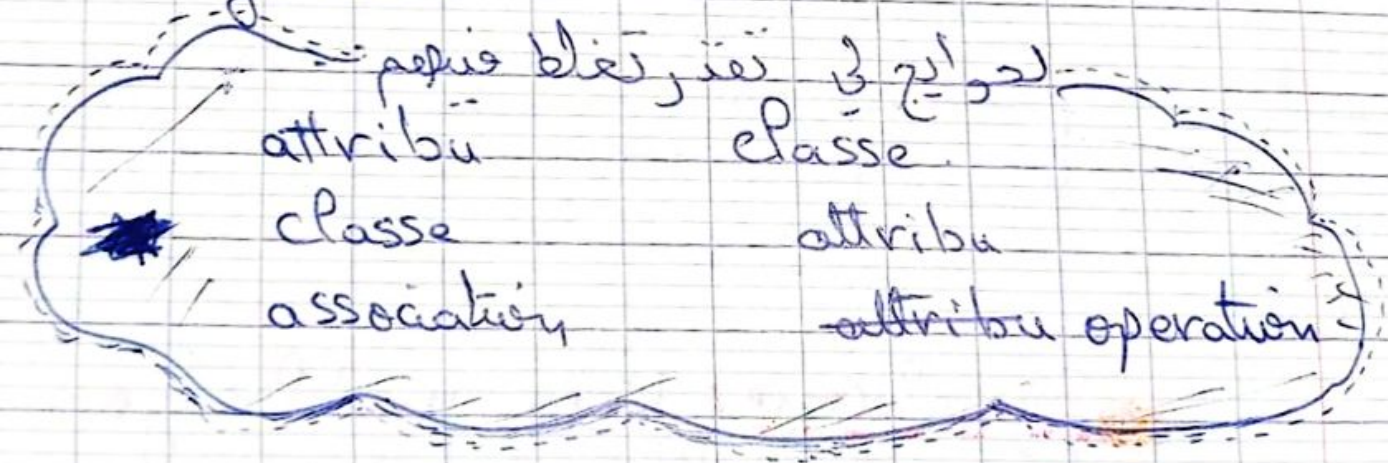 لحوايج لي تقدر تغلط فيهم
attribu classe
classe attribu
association attribu operation